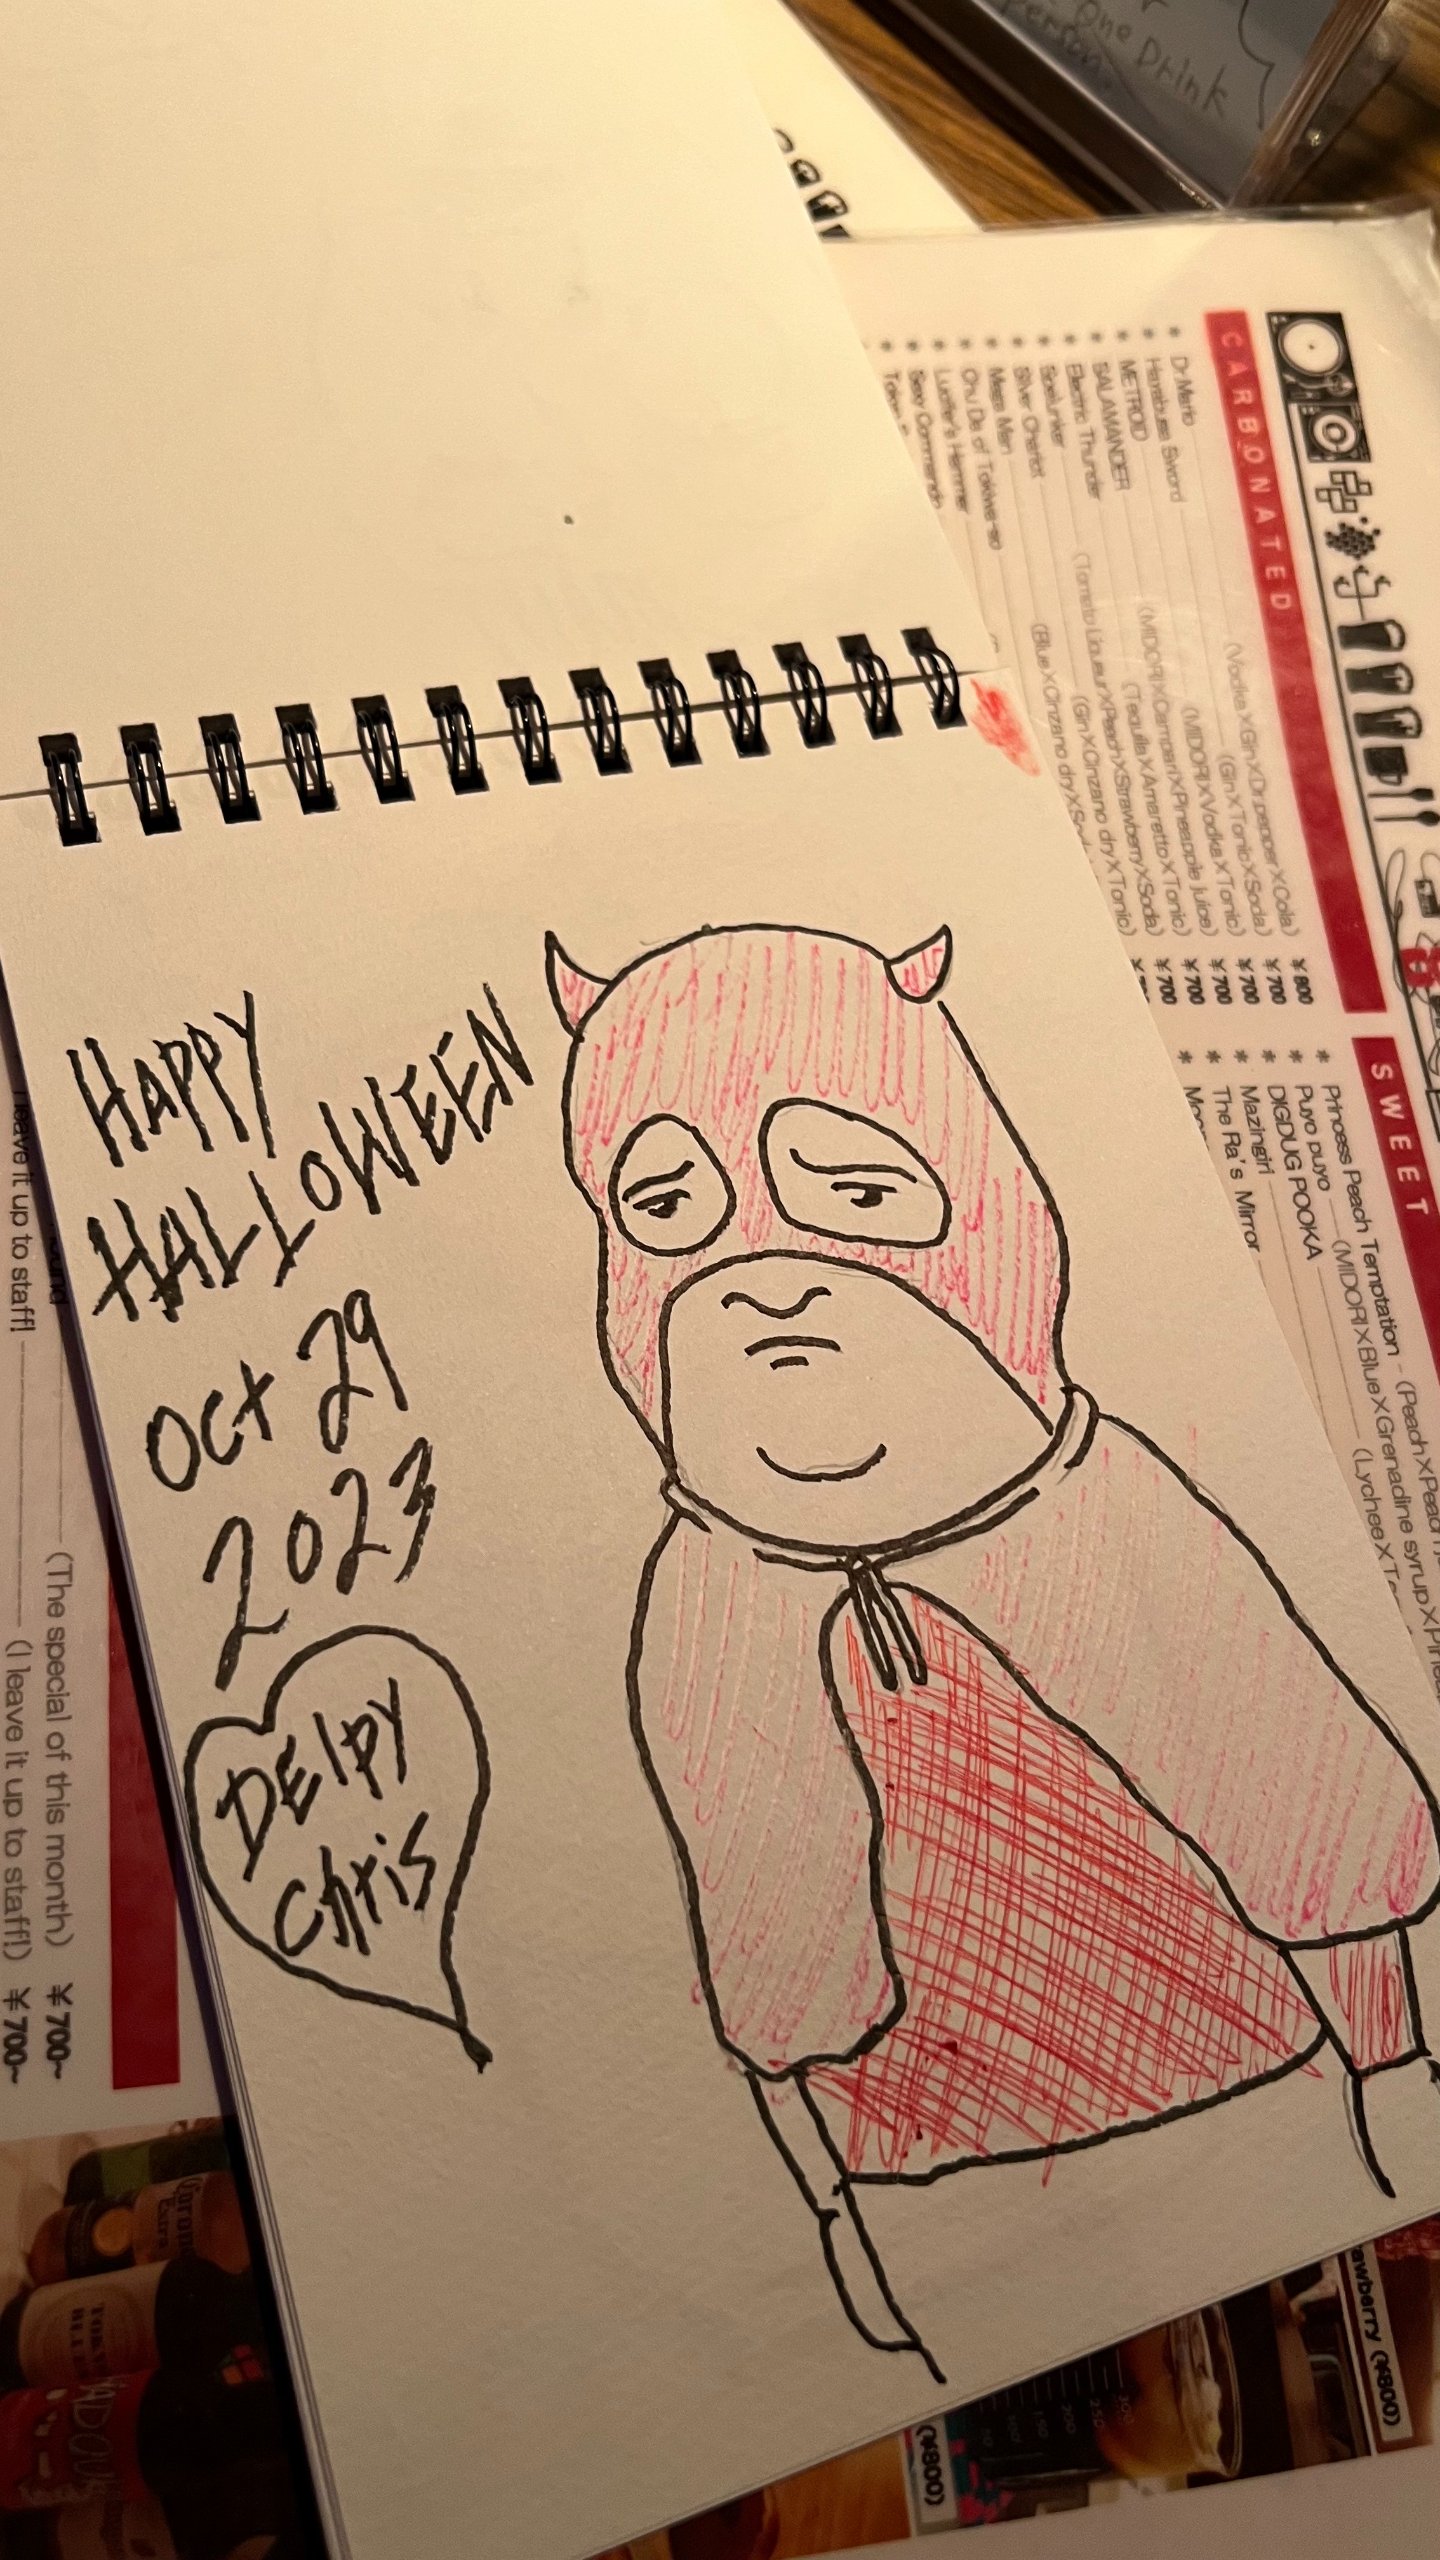 One Drink
Person
HAPPY
HALLOWEEN
Oct 29
2023
DElpy
Chris
CARBONATED
* Dr.Mario (Vodka X Gin X Dr.pepper X Cola) ¥800
* Hayabusa Sword (Gin X Tonic X Soda) ¥700
* METROID (MIDORI X Vodka X Tonic) ¥700
* SALAMANDER (MIDORI X Campari X Pineapple juice) ¥700
* Electric Thunder (Tequila X Amaretto X Tonic) ¥700
* Spelunker (Tomato Liqueur X Peach X Strawberry X Soda) ¥700
* Silver Chariot (Gin X Cinzano dry X Tonic)
* Mega Man (Blue X Cinzano dry X
* Chu Da of Tokiwa-so
* Lucifer's Hammer
* Sexy Commando
SWEET
* Princess Peach Temptation (Peach X
* Puyo puyo (MIDORI X Blue X Grenadine syrup X
* DIGDUG POOKA (Lychee X
* Mazingirl
* The Ra's Mirror
leave it up to staff!
(The special of this month) ¥700~
(I leave it up to staff!) ¥700~
Corona
Extra
(¥800)
(¥800)